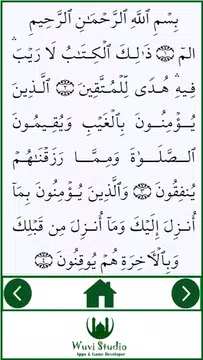 بِسْمِ اللَّهِ الرَّحْمَٰنِ الرَّحِيمِ
الٓمٓ ﴿١﴾ ذَٰلِكَ الْكِتَابُ لَا رَيْبَ
فِيهِ هُدًى لِّلْمُتَّقِينَ ﴿٢﴾ الَّذِينَ
يُؤْمِنُونَ بِالْغَيْبِ وَيُقِيمُونَ
الصَّلَوٰةَ وَمِمَّا رَزَقْنَٰهُمْ
يُنفِقُونَ ﴿٣﴾ وَالَّذِينَ يُؤْمِنُونَ بِمَا
أُنزِلَ إِلَيْكَ وَمَا أُنزِلَ مِن قَبْلِكَ
وَبِالْآخِرَةِ هُمْ يُوقِنُونَ ﴿٤﴾
Wuvi Studio
Apps & Game Developer